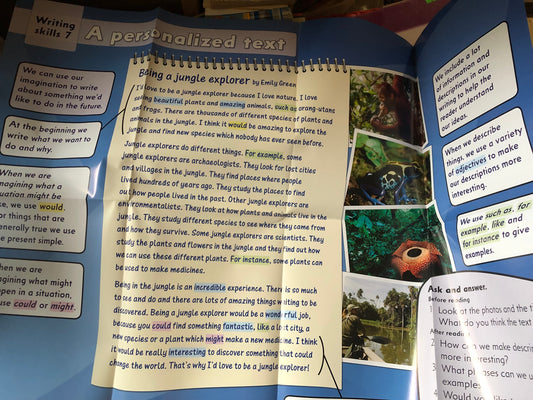 Writing
skills 7
A personalized text
We can use our
imagination to write
about something we'd
like to do in the future.
At the beginning we
write what we want to
do and why.
When we are
imagining what a
situation might be
like, we use would.
For things that are
generally true we use
the present simple.
When we are
imagining what might
happen in a situation,
we use could or might.
Being a jungle explorer by Emily Green
I'd love to be a jungle explorer because I love nature. I love
seeing beautiful plants and amazing animals, such as orang-utans
and frogs. There are thousands of different species of plants and
animals in the jungle. I think it would be amazing to explore the
jungle and find new species which nobody has ever seen before.
Jungle explorers do different things. For example, some
jungle explorers are archaeologists. They look for lost cities
and villages in the jungle. They find places where people
lived hundreds of years ago. They study the places to find
out how people lived in the past. Other jungle explorers are
environmentalists. They look at how plants and animals live in the
jungle. They study different species to see where they came from
and how they survive. Some jungle explorers are scientists. They
study the plants and flowers in the jungle and they find out how
we can use these different plants. For instance, some plants can
be used to make medicines.
Being in the jungle is an incredible experience. There is so much
to see and do and there are lots of amazing things waiting to be
discovered. Being a jungle explorer would be a wonderful job,
because you could find something fantastic, like a lost city, a
new species or a plant which might make a new medicine. I think
it would be really interesting to discover something that could
change the world. That's why I'd love to be a jungle explorer!
We include a lot
of information and
descriptions in our
writing to help the
reader understand
our ideas.
When we describe
things, we use a variety
of adjectives to make
our descriptions more
interesting.
We use such as, for
example, like and
for instance to give
examples.
Ask and answer.
Before reading
1 Look at the photos and the t
What do you think the text
After reading
2 How can we make descri
more interesting?
3 What phrases can we u
examples
4 Would you like